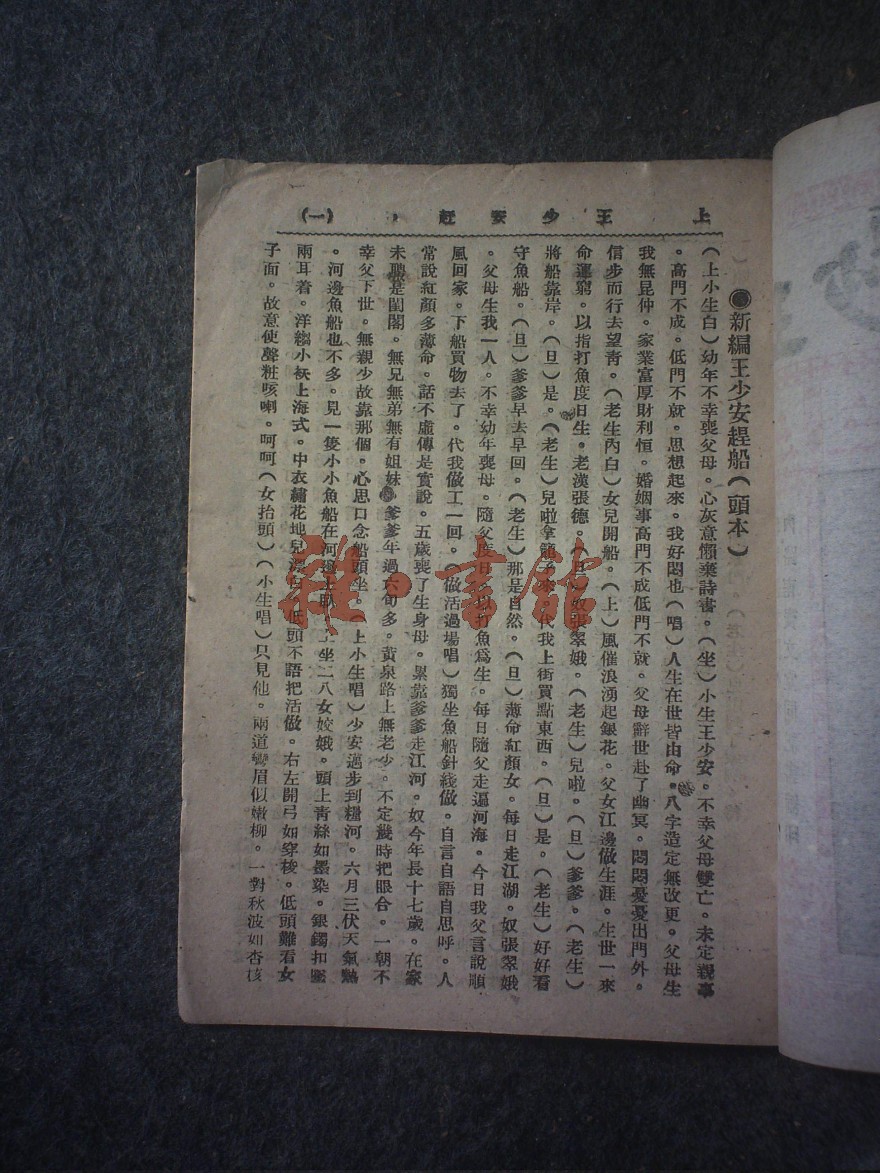 上 王少安赶 (一)
●新編王少安趕船（頭本）
（上小生白）幼年不幸喪父母。心灰意懶棄詩書。（坐）小生王少安。不幸父母雙亡。未定親事
。高門不成。低門不就。思想起來。我好悶也（唱）人生在世皆由命。八字造定無改更。父母生
我無昆仲。家業富厚財利恒。婚姻事高門不成低門不就。父母辭世赴了幽冥。悶悶憂憂出門外。
信步而行去望青。（老生內白）女兒開船。（上）風催浪湧起銀花。父女江邊做生涯。生世一來
命運窮。以指打魚度日生。老漢張德。（旦）奴張翠娥。（老生）兒啦。（旦）爹爹。（老生）
將船靠岸。（旦）是。（老生）兒啦拿籃 來 代我上街買點東西。（旦）是。（老生）好好看
守魚船。（旦）爹爹早去早回。（老生）那是自然。（旦）薄命紅顏女。每日走江湖。奴張翠娥
。父母生我一人。不幸幼年喪母。隨父度日。以打魚爲生。每日隨父走遍河海。今日我父言說順
風回家。下船買物去了。代我做工一回。（做活過場唱）獨坐魚船針綫做。自言自語自思呼。人
常說紅顏多薄命。話不虛傳是實說。五歲喪了生身母。累靠爹爹走江河。奴今年長十七歲。在家
未聘是閨閣。無兄無弟無有姐妹 爹爹年過六旬多。黃泉路上無老少。不定幾時把眼合。一朝不
幸父下世。無親少故靠那個。心思口念船頭坐。（上小生唱）少安邁步到糧河。六月三伏天氣熱
。河邊魚船也不多。見一隻小小魚船在河邊上 坐二八女姣娥。頭上青絲如墨染。銀鐲扣 
兩耳着。洋縐小袄上海式。中衣繡花地兒 低頭不語把活做。右左開弓如穿梭。低頭難看女
子面。故意使聲粧咳喇。呵呵（女抬頭）（小生唱）只見他。兩道彎眉似嫩柳。一對秋波如杏核
雜·書館